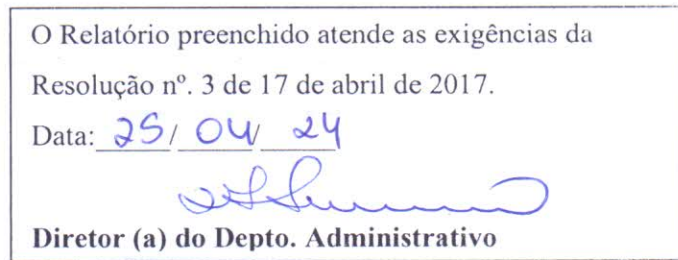 O Relatório preenchido atende as exigências da
Resolução nº. 3 de 17 de abril de 2017.
Data: 25/ 04/ 24
Diretor (a) do Depto. Administrativo